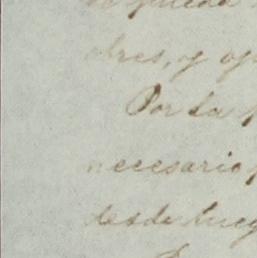 se queda
obres, y
Por la
necesario
desde lueg